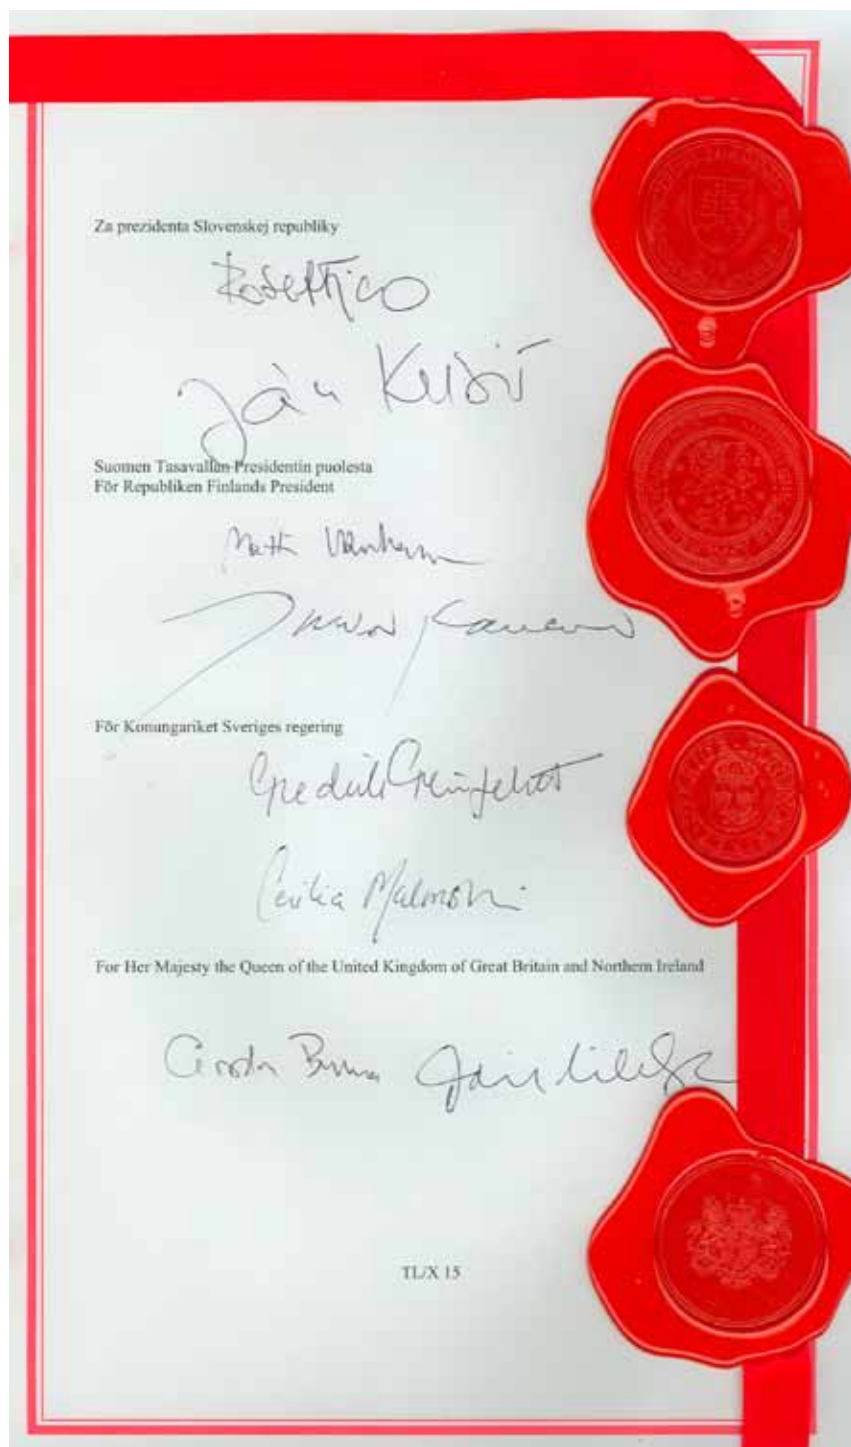 Za prezidenta Slovenskej republiky
Robert Fico
Ján Kubiš
Suomen Tasavallan Presidentin puolesta
För Republiken Finlands President
Matti Vanhanen
För Konungariket Sveriges regering
Fredrik Reinfeldt
Cecilia Malmström
For Her Majesty the Queen of the United Kingdom of Great Britain and Northern Ireland
Gordon Brown
TL/X 15